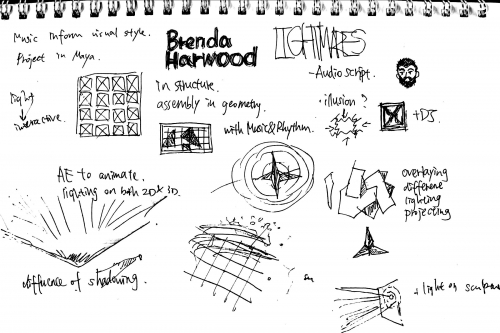 Music inform visual style.
Project in Maya.
Brenda
Harwood
LIGHTMARES
-Audio script.
light
interactive.
in structure.
assembly in geometry.
with Music&Rhythm.
·illusion?
+DJ.
AE to animate.
lighting on both 2D& 3D.
overlaying
difference
lighting
projecting
diffuence of shadowing.
light or